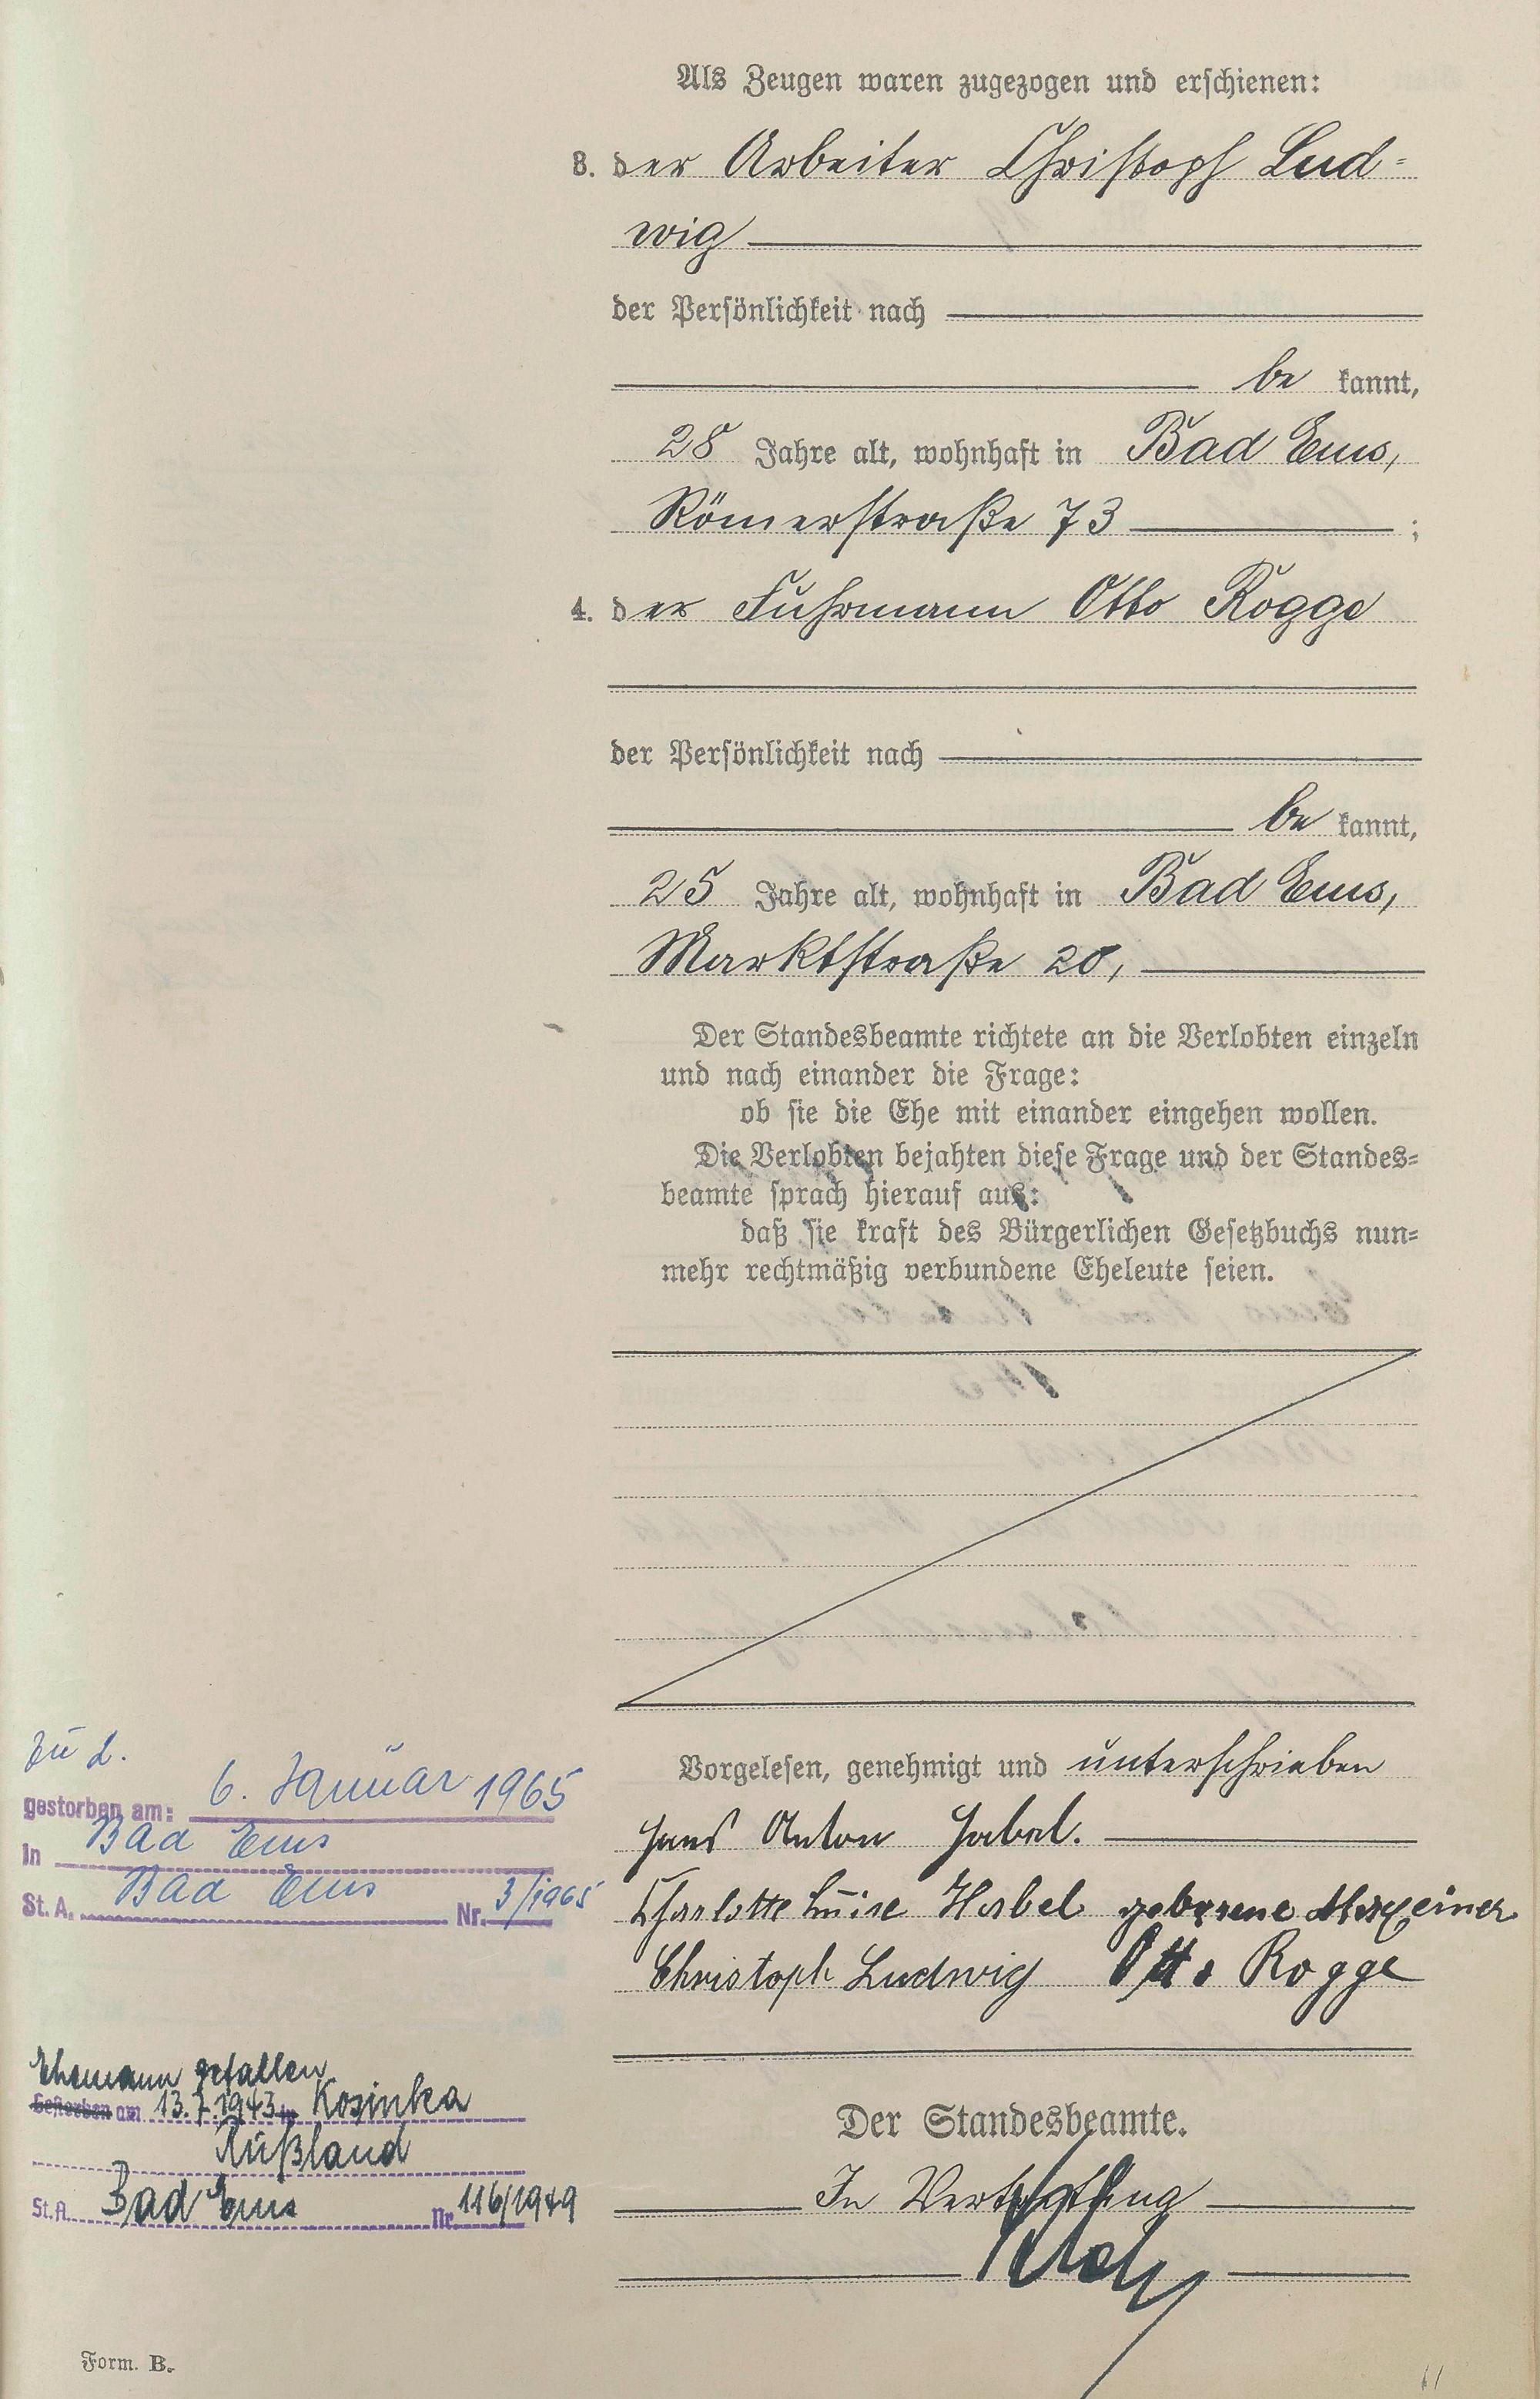 Als Zeugen waren zugezogen und erschienen:
3. der Arbeiter Christoph Lud-
wig
der Persönlichkeit nach
be kannt,
28 Jahre alt, wohnhaft in Bad Ems,
Römerstraße 73 ;
4. der Fuhrmann Otto Rogge
der Persönlichkeit nach
be kannt,
25 Jahre alt, wohnhaft in Bad Ems,
Marktstraße 20,
Der Standesbeamte richtete an die Verlobten einzeln
und nach einander die Frage:
ob sie die Ehe mit einander eingehen wollen.
Die Verlobten bejahten diese Frage und der Standes-
beamte sprach hierauf aus:
daß sie kraft des Bürgerlichen Gesetzbuchs nun-
mehr rechtmäßig verbundene Eheleute seien.
Vorgelesen, genehmigt und unterschrieben
Hans Anton Habel.
Charlotte Luise Habel geborene Maxeiner
Christoph Ludwig Otto Rogge
Der Standesbeamte.
In Vertretung
zu 2.
gestorben am: 6. Januar 1965
in Bad Ems
St. A. Bad Ems Nr. 3/1965
Ehemann gefallen
Gestorben am 13.7.1943 in Kosinka
Rußland
St.A. Bad Ems Nr. 116/1949
Form. B.